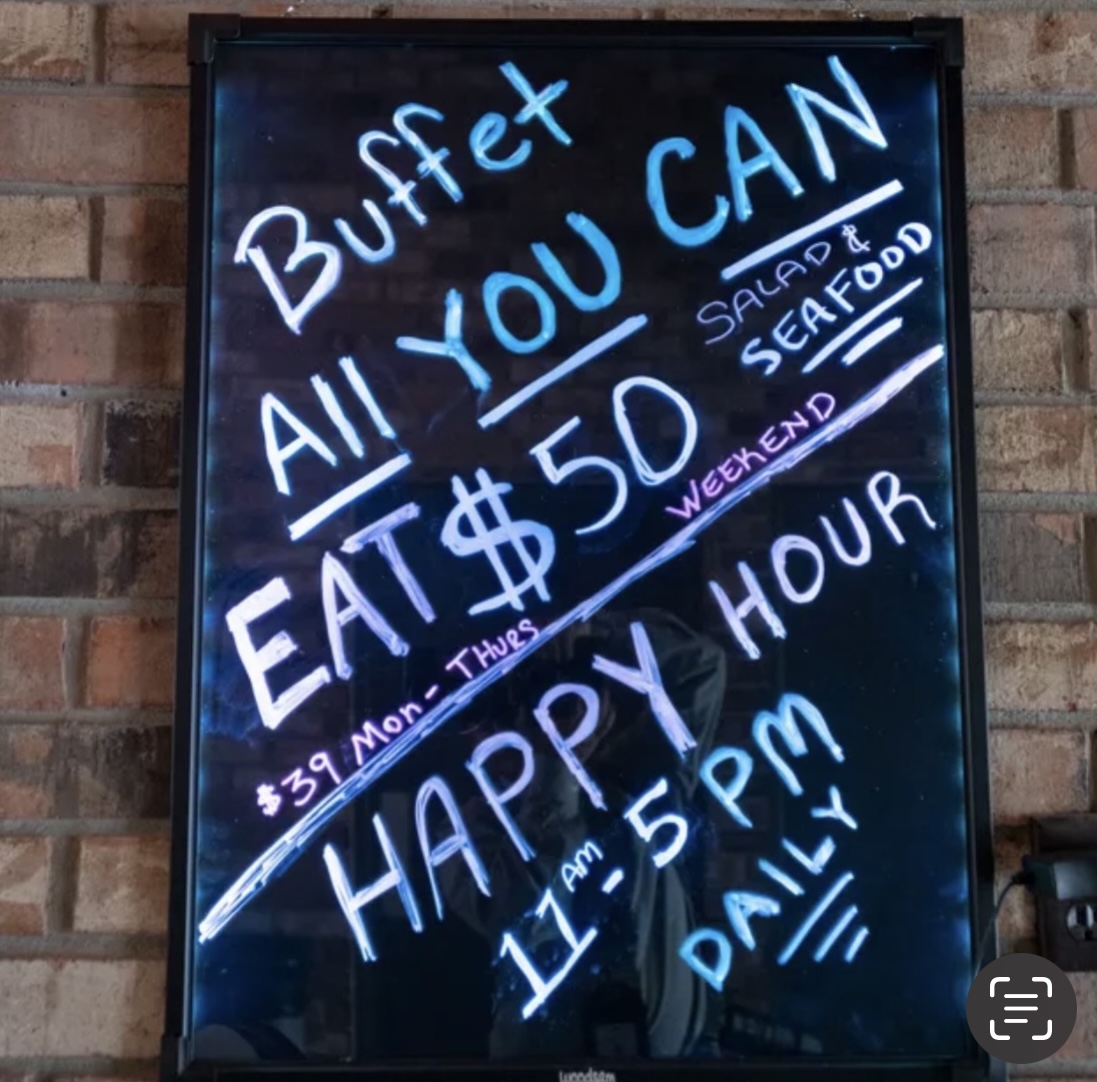 Buffet
All YOU CAN
SALAD &
SEAFOOD
EAT $50
WEEKEND
$39 Mon - THURS
HAPPY HOUR
11 AM - 5 PM
DAILY